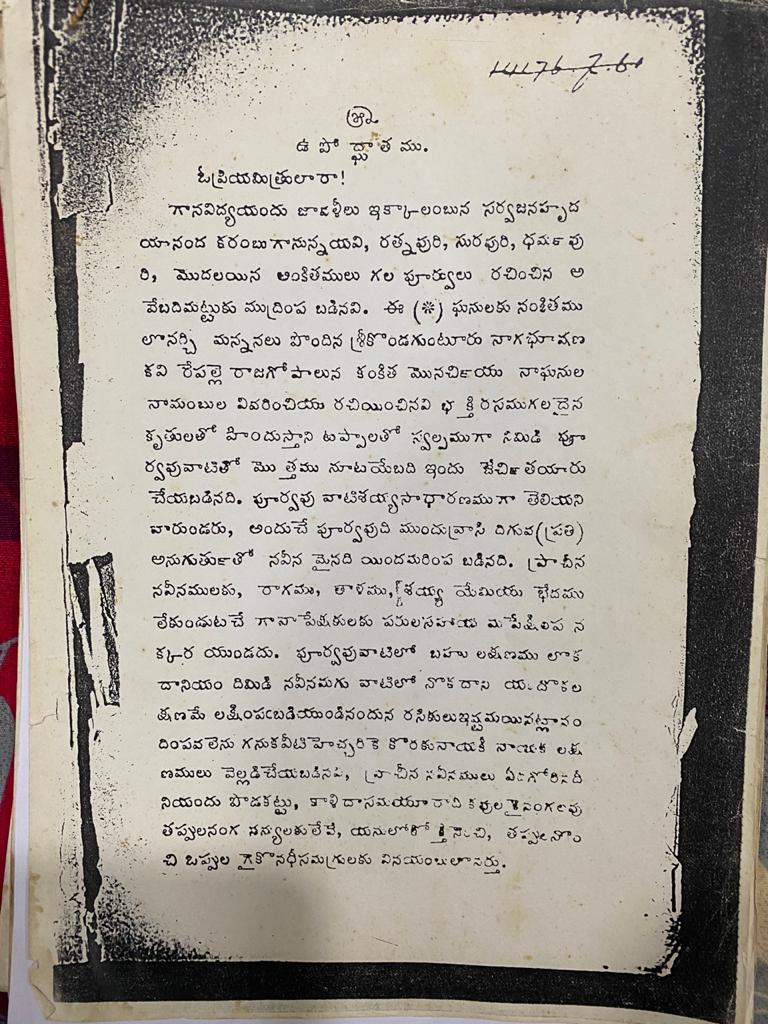 14176.7.61
శ్రీ
ఉ పో ద్ఘా త ము.
ఓప్రియమిత్రులారా!
గానవిద్యయందు జావళీలు ఇక్కాలంబున సర్వజనహృద
యానంద కరంబు గానున్నయవి, రత్నపురి, సురపురి, ధమ౯పు
రి, మొదలయిన అంకితములు గల పూర్వులు రచించిన అ
వేబదిమట్టుకు ముద్రింప బడినవి. ఈ (❋) ఘనులకు నంకితము
లొనర్చి మన్ననలు పొందిన శ్రీకొండగుంటూరు నాగభూషణ
కవి రేపల్లె రాజగోపాలున కంకిత మొనచి౯యు నాఘనుల
నామంబుల వివరించియు రచియించినవి భ క్తి రసముగల దైన
కృతులతో హిందుస్తాని టప్పాలతో స్వల్పముగా నిమిడి పూ
ర్వపువాటితో మొ త్తము నూటయేబది ఇందు జేచి౯తయారు
చేయబడినది. పూర్వపు వాటిశయ్యసాధారణముగా తెలియని
వారుండరు, అందుచే పూర్వపుది ముందువ్రాసి దిగువ(ప్రతి)
అనుగుతు౯తో నవీన మైనది యిందమరింప బడినది. ప్రాచీన
నవీనములకు, రాగము, తాళము, శయ్య యేమియు భేదము
లేకుండుటచే గానాపేక్షకులకు పరులసహాయ మపేక్షింప న
క్కర యుండదు. పూర్వపువాటిలో బహు లక్షణము లొక
దానియం దిమిడి నవీనమగు వాటిలో నొకదాని యందొకల
క్షణమే లక్షింపఁబడియుండినందున రసికులుఇష్టమయినట్లానం
దింపవలెను గనుకవీటిహెచ్చరికె కొరకునాయకీ నాయక లక్ష
ణములు వెల్లడిచేయబడినవి, ప్రాచీన నవీనములు
నియందు పొడకట్టు, కాళిదాసమయూరాది కవుల
తప్పులనంగ నన్యులకులేవే, తప్పులనొం
చి ఒప్పుల గైకొనధీసమగ్రులకు వినయంబులొనర్తు.